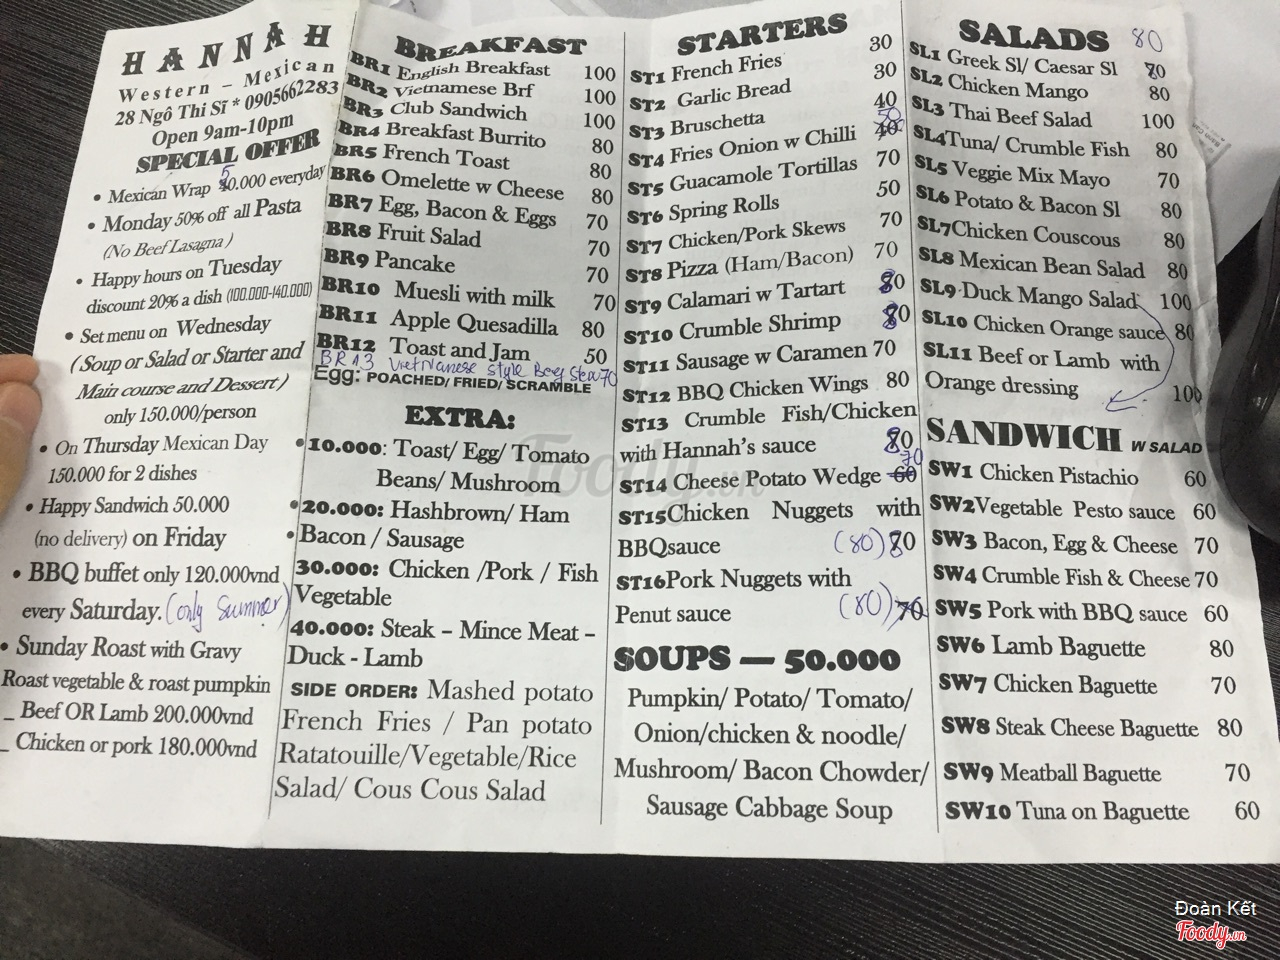 HANNAH
Western – Mexican
28 Ngô Thi Sĩ * 0905662283
Open 9am-10pm
SPECIAL OFFER
• Mexican Wrap 50.000 everyday
• Monday 50% off all Pasta
(No Beef Lasagna)
• Happy hours on Tuesday
discount 20% a dish (100.000-140.000)
• Set menu on Wednesday
(Soup or Salad or Starter and
Main course and Dessert)
only 150.000/person
• On Thursday Mexican Day
150.000 for 2 dishes
• Happy Sandwich 50.000
(no delivery) on Friday
• BBQ buffet only 120.000vnd
every Saturday. (only Summer)
• Sunday Roast with Gravy
Roast vegetable & roast pumpkin
_ Beef OR Lamb 200.000vnd
_ Chicken or pork 180.000vnd
BREAKFAST
BR1 English Breakfast 100
BR2 Vietnamese Brf 100
BR3 Club Sandwich 100
BR4 Breakfast Burrito 80
BR5 French Toast 80
BR6 Omelette w Cheese 80
BR7 Egg, Bacon & Eggs 70
BR8 Fruit Salad 70
BR9 Pancake 70
BR10 Muesli with milk 70
BR11 Apple Quesadilla 80
BR12 Toast and Jam 50
BR13 Vietnamese style Beef Stew 70
Egg: POACHED/ FRIED/ SCRAMBLE
EXTRA:
• 10.000: Toast/ Egg/ Tomato
Beans/ Mushroom
• 20.000: Hashbrown/ Ham
• Bacon / Sausage
30.000: Chicken /Pork / Fish
Vegetable
40.000: Steak – Mince Meat –
Duck - Lamb
SIDE ORDER: Mashed potato
French Fries / Pan potato
Ratatouille/Vegetable/Rice
Salad/ Cous Cous Salad
STARTERS
ST1 French Fries 30
ST2 Garlic Bread 30
ST3 Bruschetta 40
50
ST4 Fries Onion w Chilli 40
ST5 Guacamole Tortillas 70
ST6 Spring Rolls 50
ST7 Chicken/Pork Skews 70
ST8 Pizza (Ham/Bacon) 70
ST9 Calamari w Tartart 80
ST10 Crumble Shrimp 80
ST11 Sausage w Caramen 70
ST12 BBQ Chicken Wings 80
ST13 Crumble Fish/Chicken
with Hannah's sauce 80
70
ST14 Cheese Potato Wedge 60
ST15Chicken Nuggets with
BBQsauce (80) 80
ST16Pork Nuggets with
Penut sauce (80) 70
SOUPS — 50.000
Pumpkin/ Potato/ Tomato/
Onion/chicken & noodle/
Mushroom/ Bacon Chowder/
Sausage Cabbage Soup
SALADS 80
SL1 Greek Sl/ Caesar Sl 70
SL2 Chicken Mango 80
SL3 Thai Beef Salad 100
SL4Tuna/ Crumble Fish 80
SL5 Veggie Mix Mayo 70
SL6 Potato & Bacon Sl 80
SL7Chicken Couscous 80
SL8 Mexican Bean Salad 80
SL9 Duck Mango Salad 100
SL10 Chicken Orange sauce 80
SL11 Beef or Lamb with
Orange dressing 100
SANDWICH W SALAD
SW1 Chicken Pistachio 60
SW2Vegetable Pesto sauce 60
SW3 Bacon, Egg & Cheese 70
SW4 Crumble Fish & Cheese 70
SW5 Pork with BBQ sauce 60
SW6 Lamb Baguette 80
SW7 Chicken Baguette 70
SW8 Steak Cheese Baguette 80
SW9 Meatball Baguette 70
SW10 Tuna on Baguette 60
Foody.vn
Đoàn Kết
Foody.vn